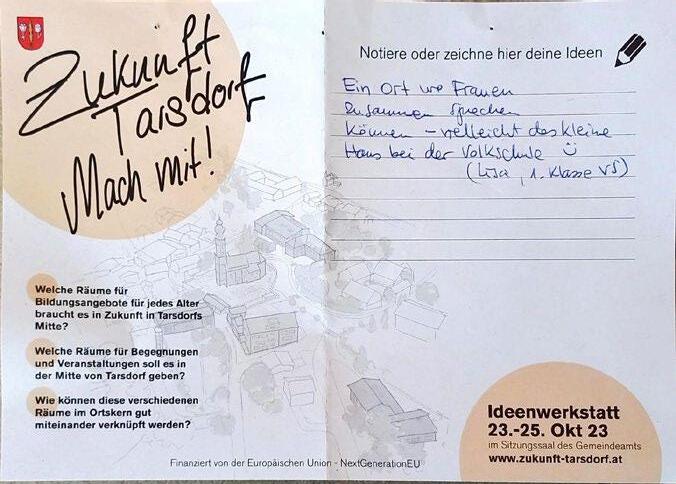 Zukunft
Tarsdorf
Mach mit!
Welche Räume für
Bildungsangebote für jedes Alter
braucht es in Zukunft in Tarsdorfs
Mitte?
Welche Räume für Begegnungen
und Veranstaltungen soll es in
der Mitte von Tarsdorf geben?
Wie können diese verschiedenen
Räume im Ortskern gut
miteinander verknüpft werden?
Notiere oder zeichne hier deine Ideen
Ein Ort wo Frauen
zusammen sprechen
können - vielleicht das kleine
Haus bei der Volkschule ☺
(Lisa, 1. Klasse VS)
Ideenwerkstatt
23.-25. Okt 23
im Sitzungssaal des Gemeindeamts
www.zukunft-tarsdorf.at
Finanziert von der Europäischen Union - NextGenerationEU